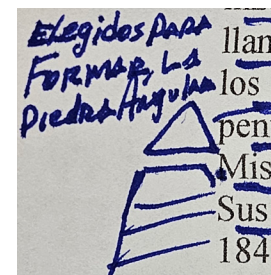 Elegidos para
Formar, La
Piedra Angular
llan
los
pen
Mis
Sus
184